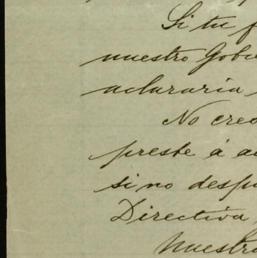 Si tu
nuestro Gobi
aclararia
No creo
preste á a
si no despu
Directiva
Nuestro